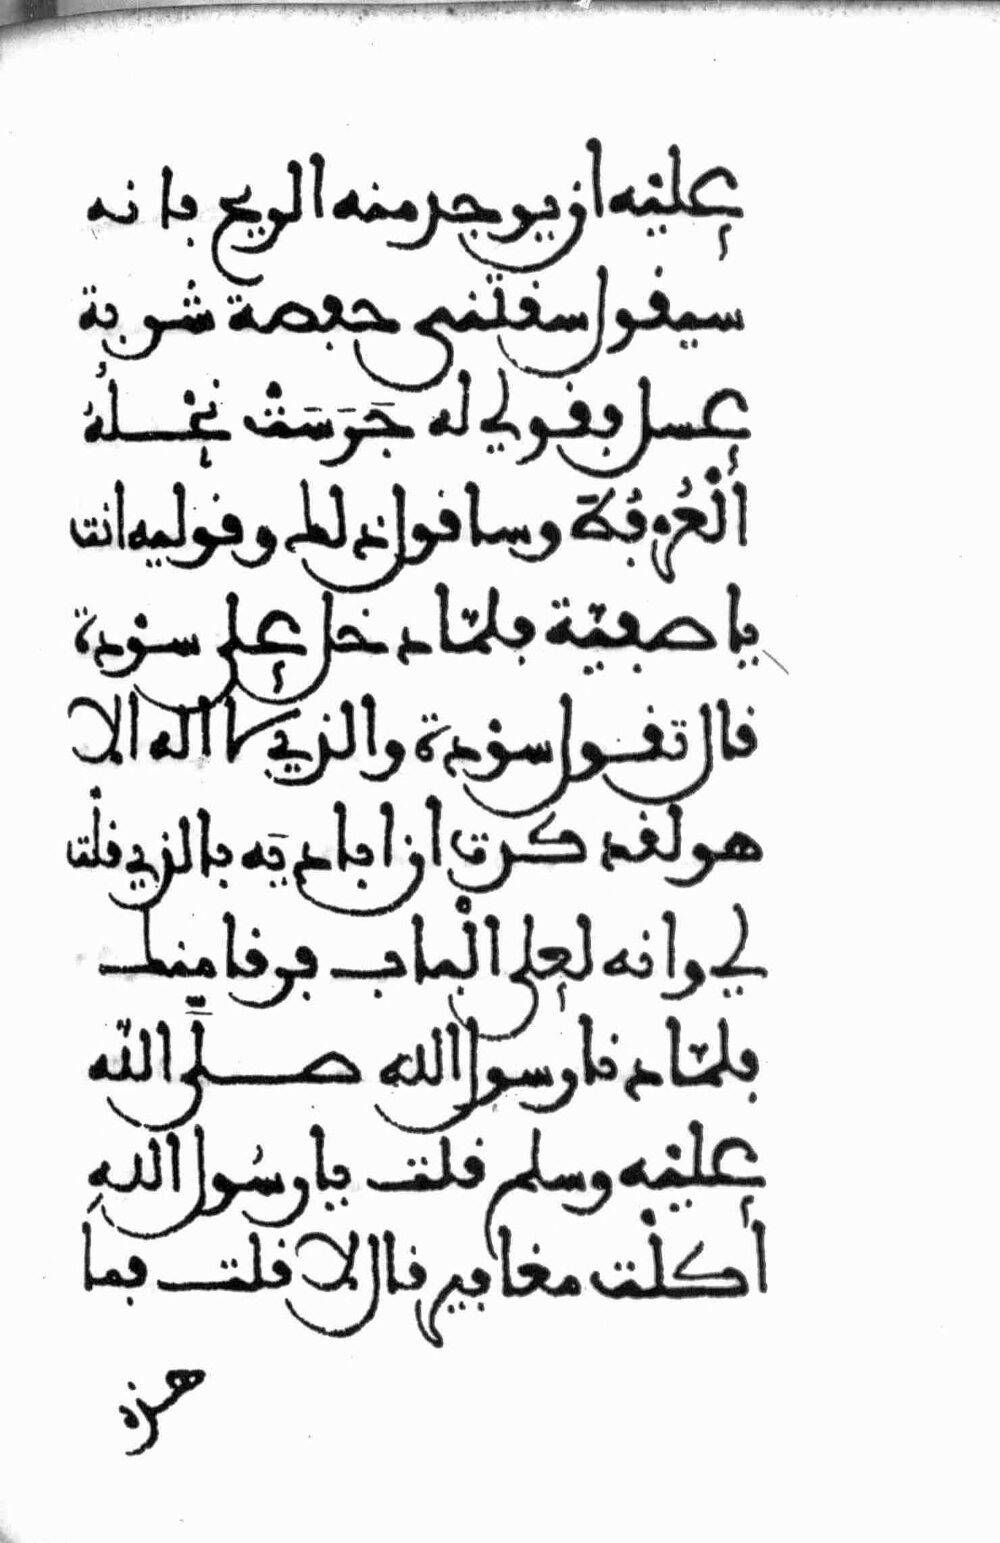 عليه ان يوجد منه الريح فانه
سيقول سقتنى حفصة شربة
عسل فقولي له جَرَسَتْ نحْلُهُ
الْعُرْفُطَ وساقول ذلك وقوليه انت
يا صفيّة فلمّا دخل على سوْدة
قال تقول سوْدة والذي لا اله الا
هو لقد كدت ان اباديَه بالذي قلْت
لي وانه لعلى الْباب فرقا منك
فلمّا دنا رسول الله صلّى اللّه
عليْه وسلم قلت يا رسُول اللهِ
أكلْت مغافير قال لا قلت فما
هذه